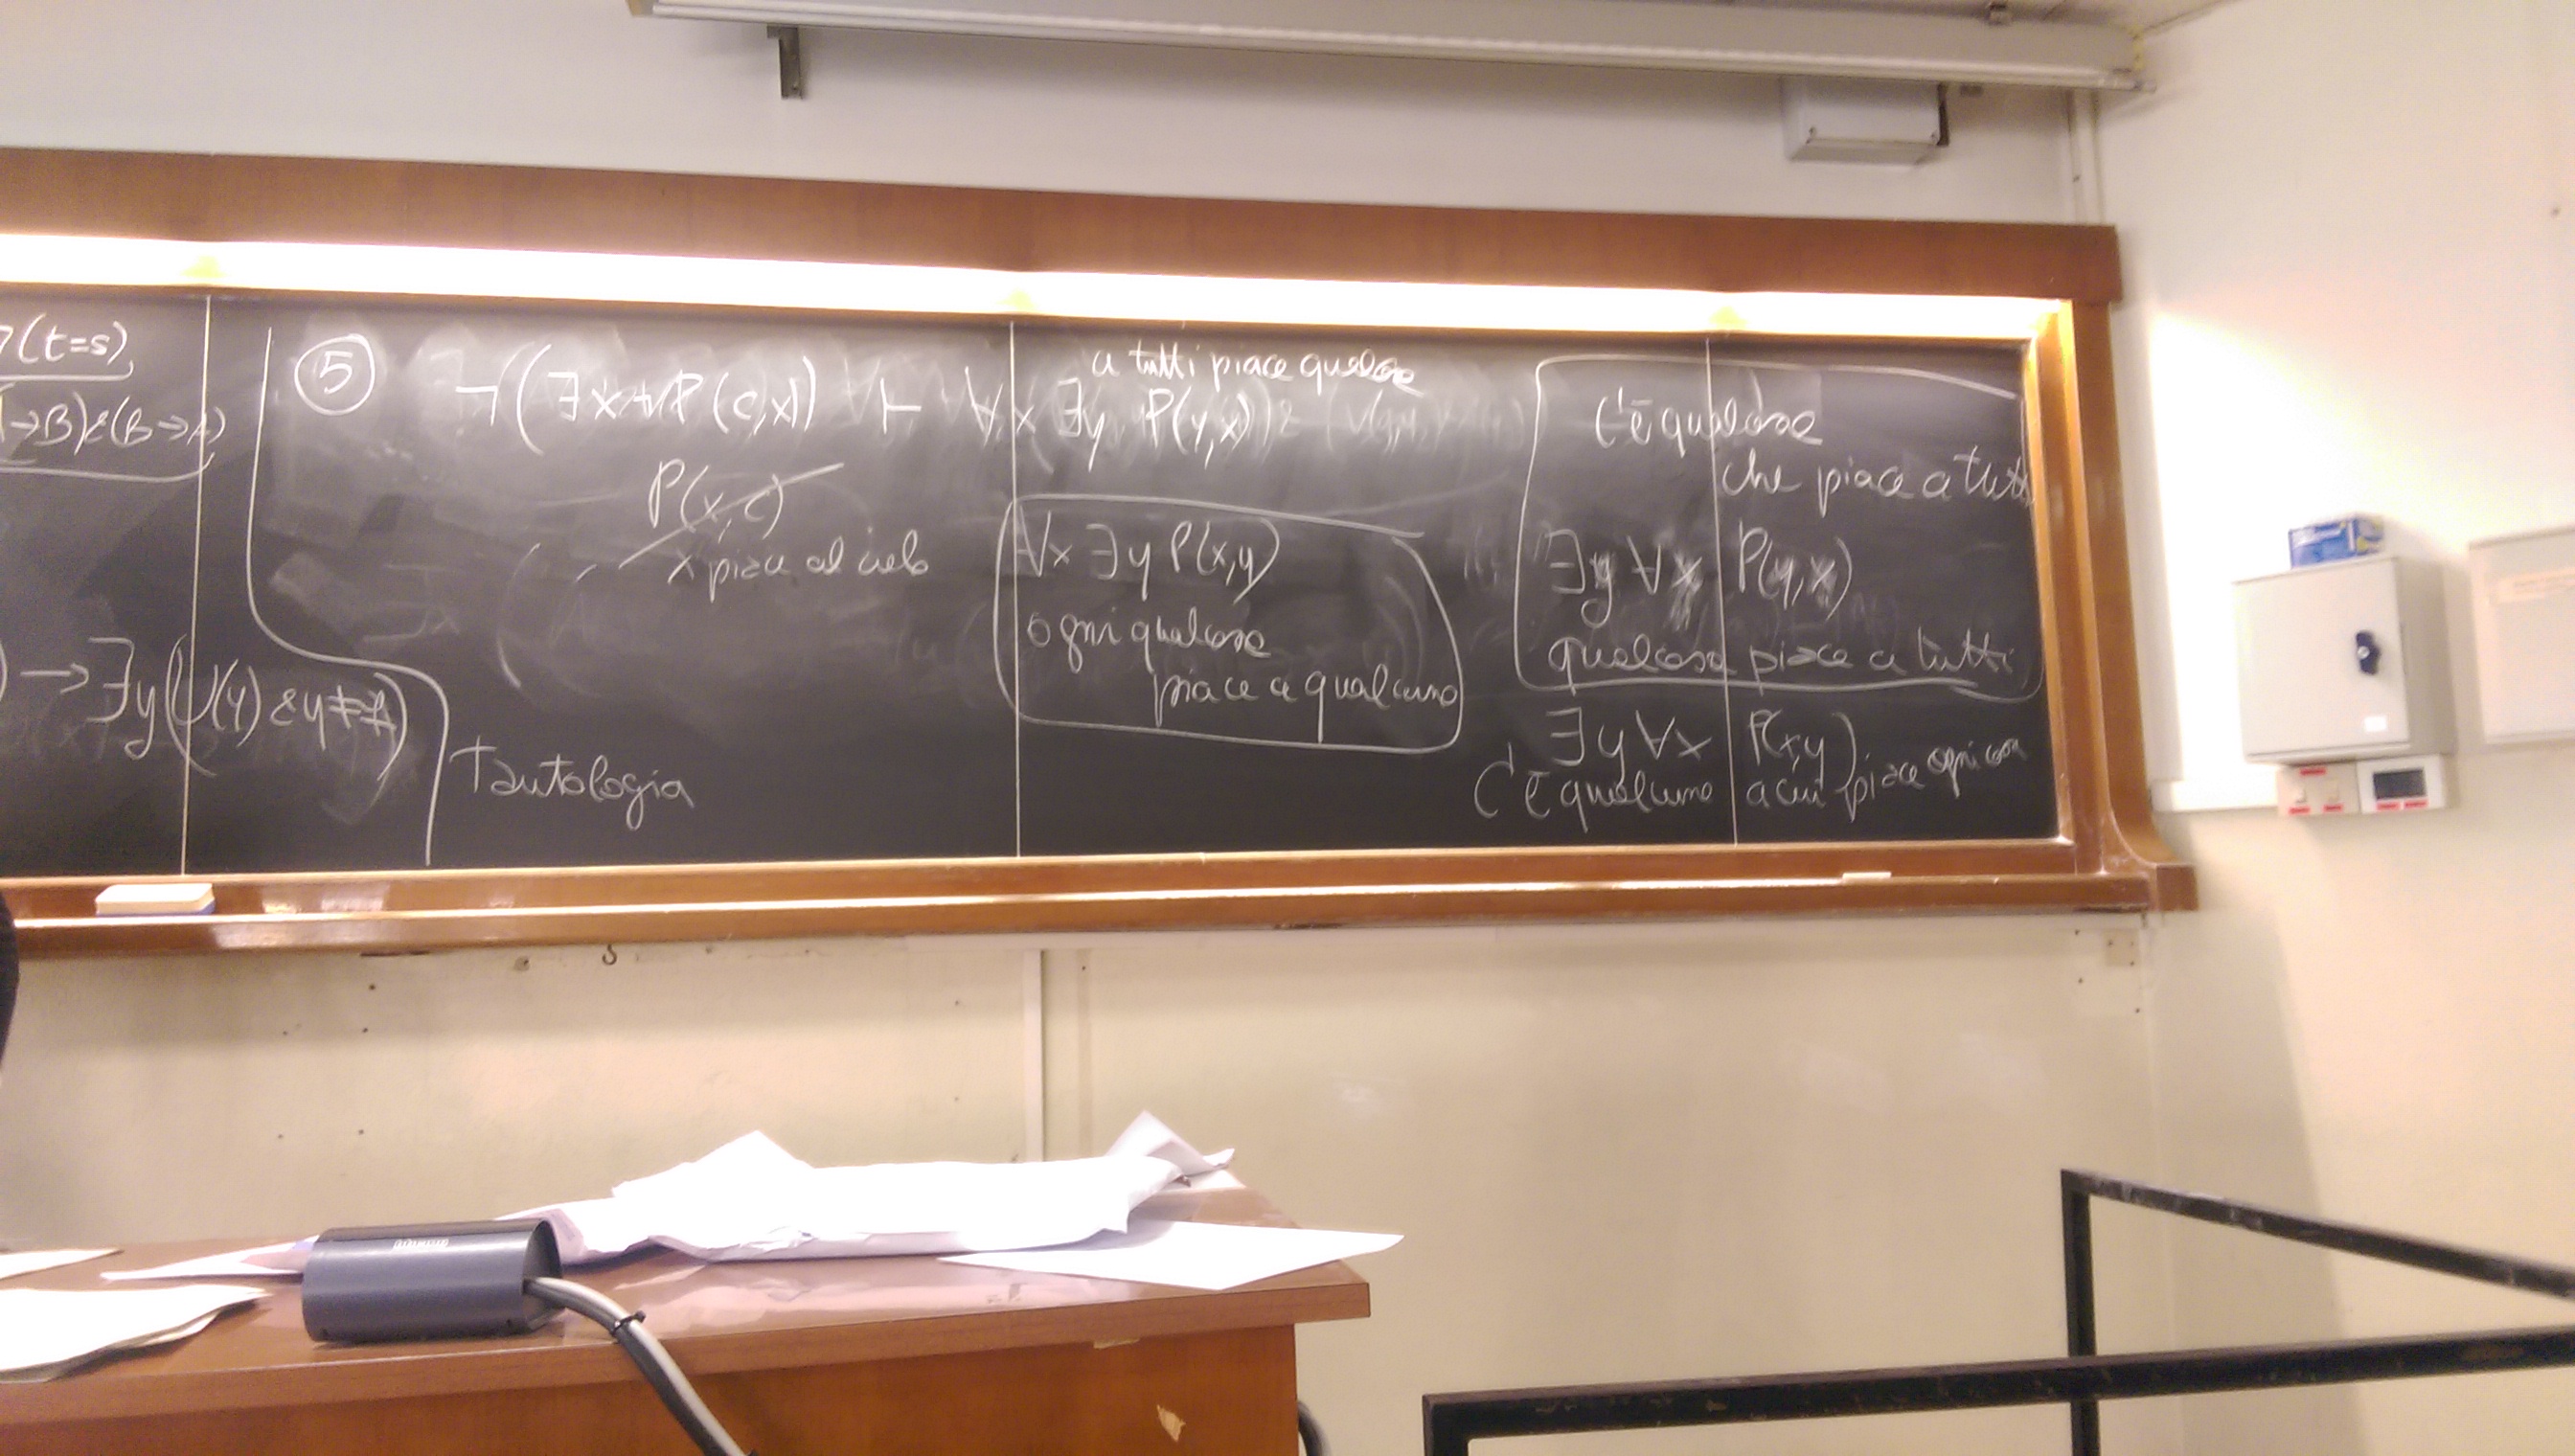 ¬(t=s)
→B)&(B→A)
) → ∃y(U(y) & y≠z)
⑤
¬(∃x P(c,x)) ⊢ ∀x ∃y P(y,x)
a tutti piace qualcosa
P(x,c)
x piace al cielo
Tautologia
∀x ∃y P(x,y)
ogni qualcosa
piace a qualcuno
C'è qualcosa
che piace a tutti
∃y ∀x P(y,x)
qualcosa piace a tutti
∃y ∀x P(x,y)
C'è qualcuno a cui piace ogni cosa